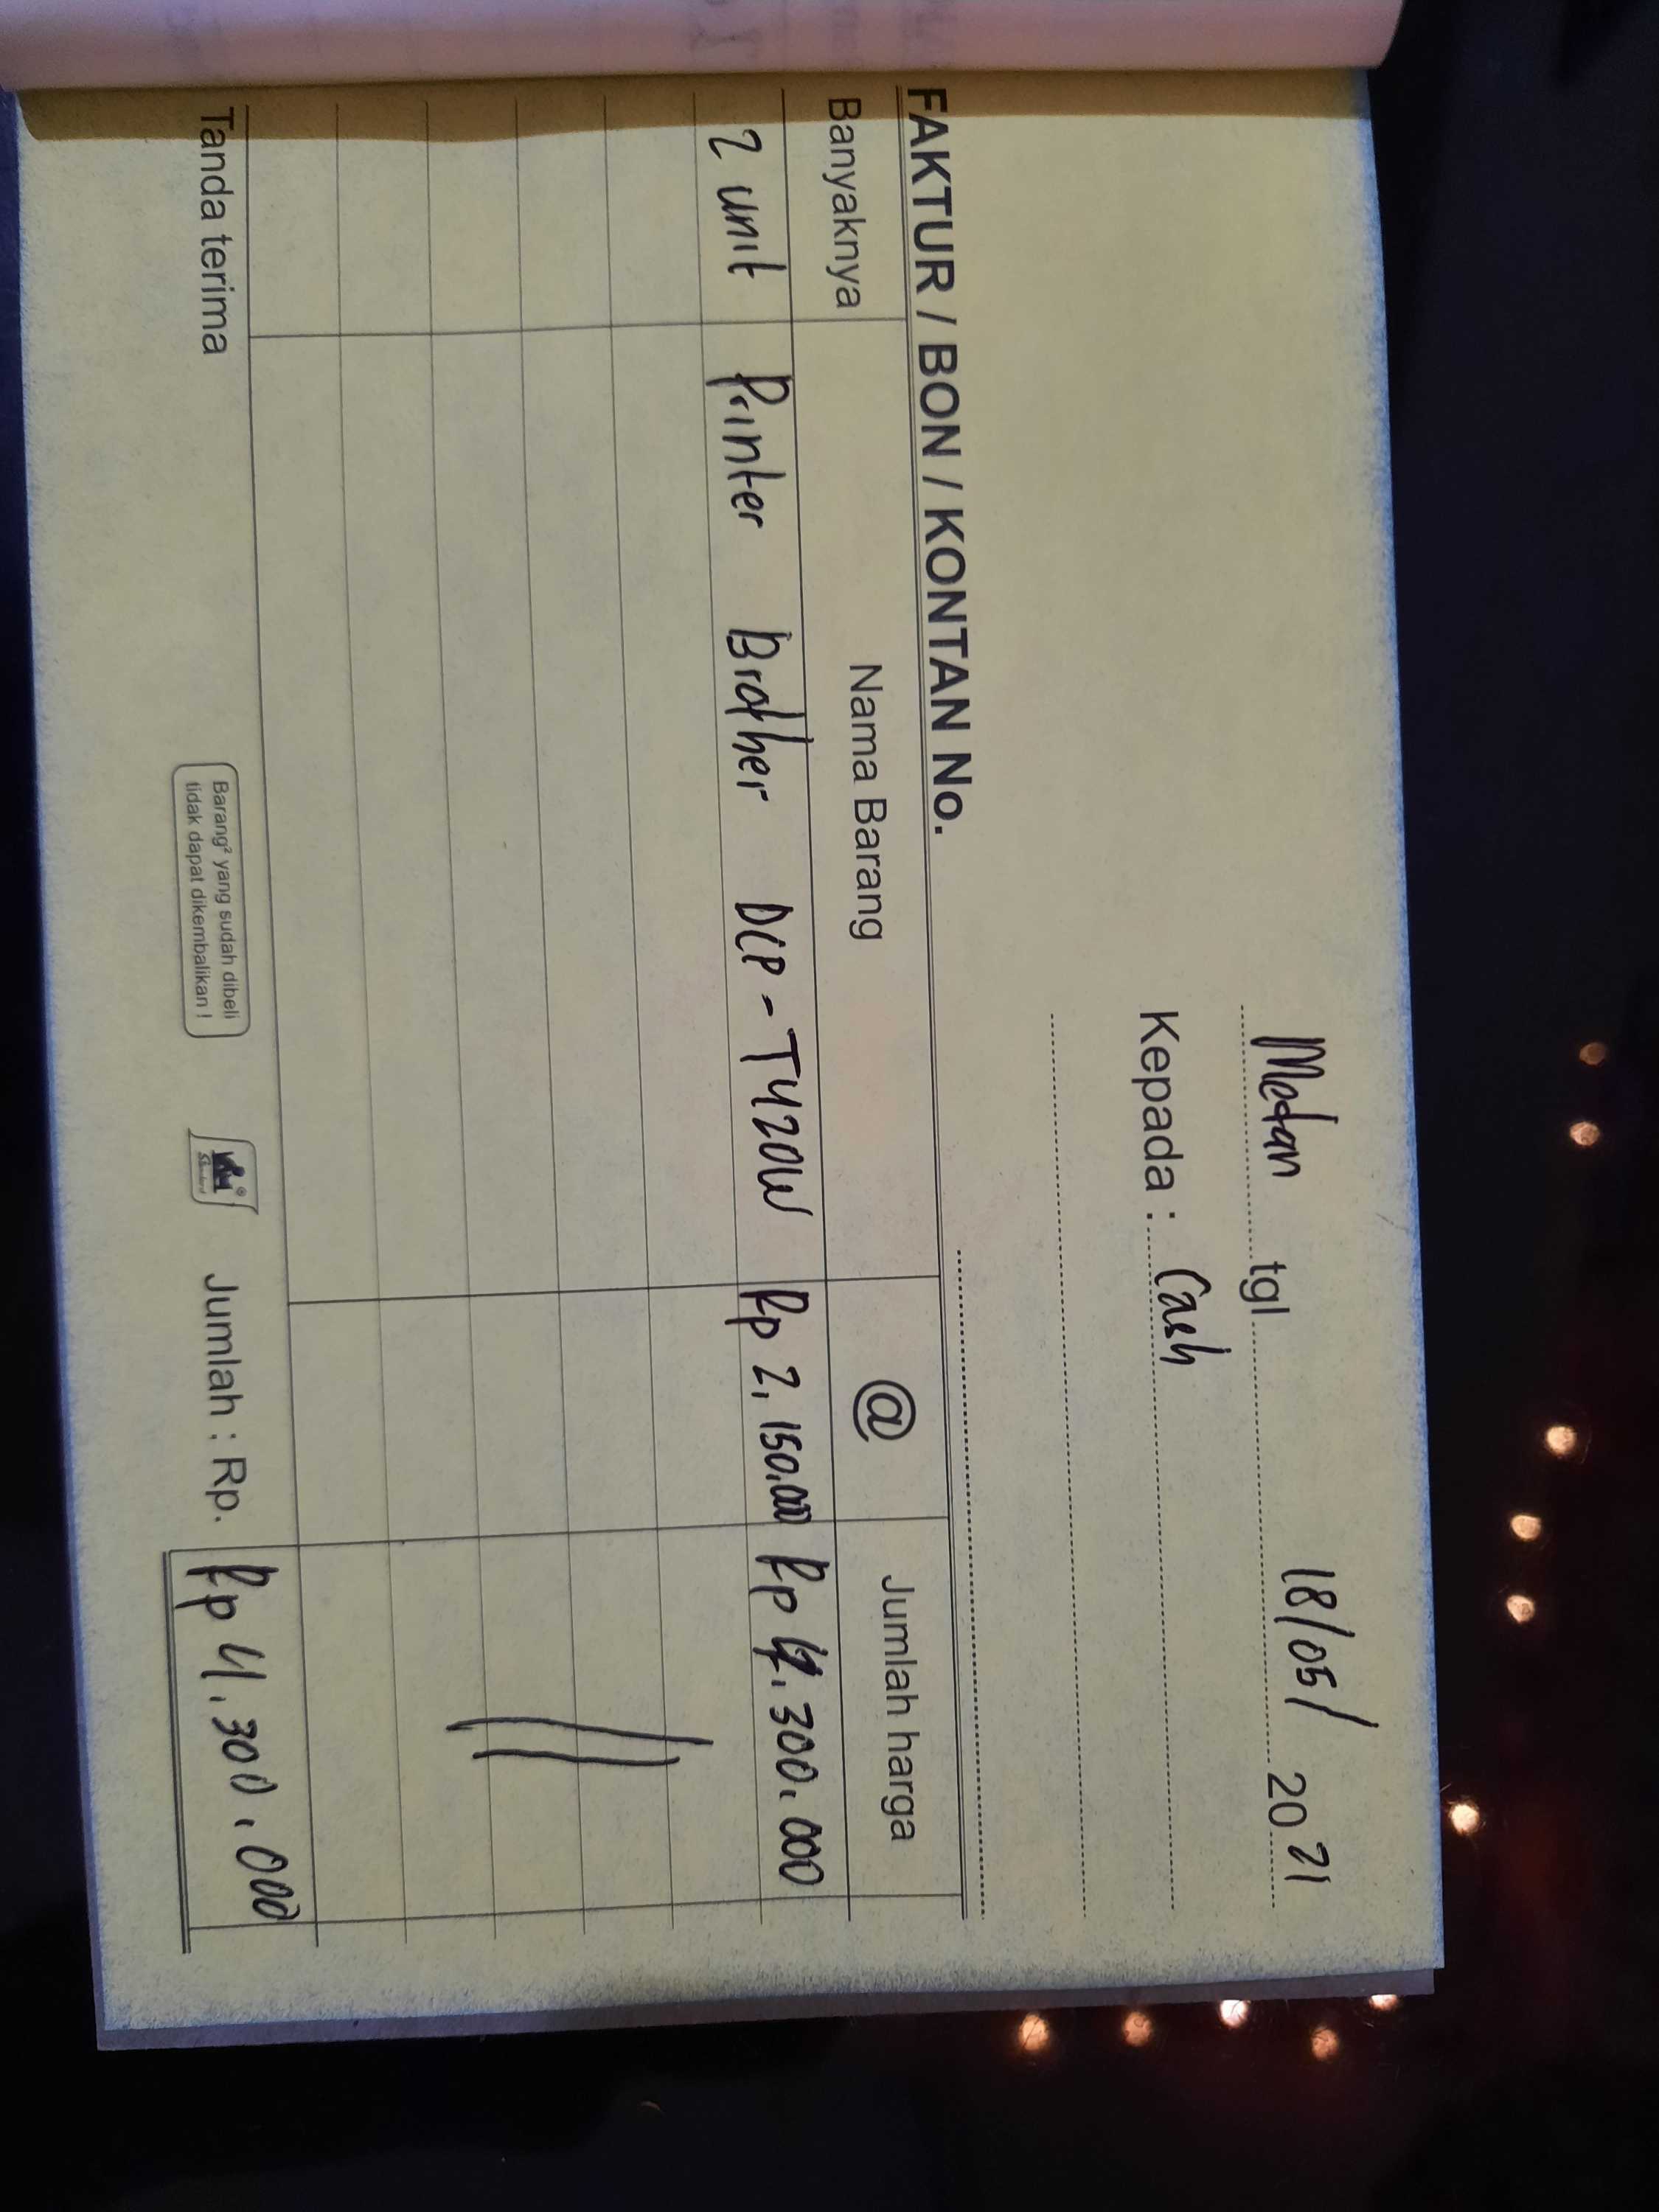 Medan tgl 18/05/ 2021
Kepada : Cash
FAKTUR / BON / KONTAN No.
Banyaknya Nama Barang @ Jumlah harga
2 unit Printer Brother DCP-T420W Rp 2,150.000 Rp 4.300.000
Tanda terima
Barang² yang sudah dibeli
tidak dapat dikembalikan !
Jumlah : Rp. Rp 4.300.000